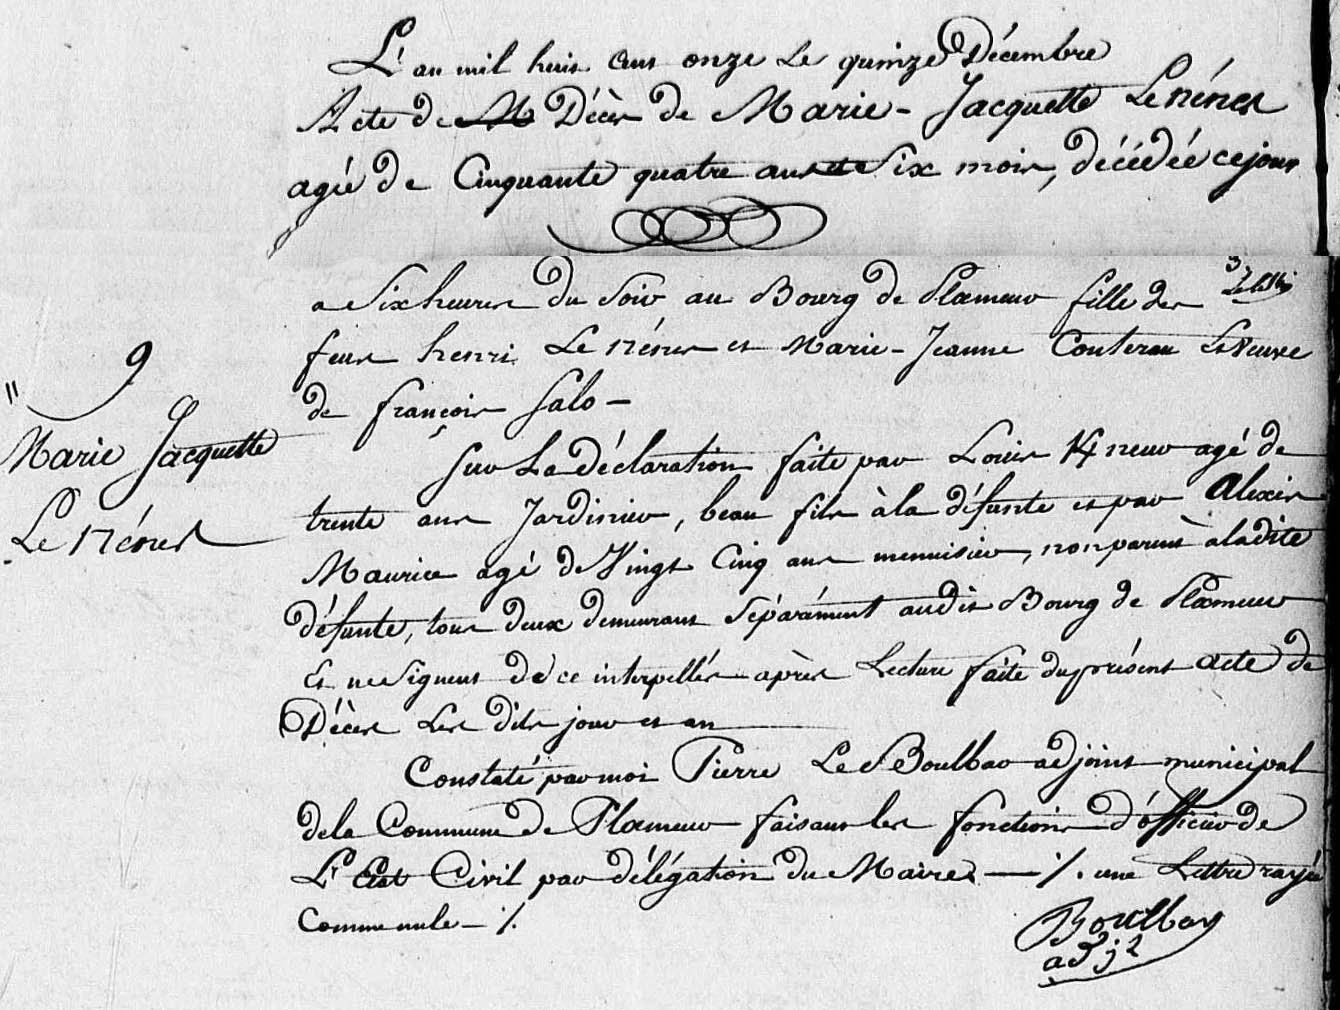 L'an mil huit cent onze Le quinze Décembre
Acte de Décès de Marie-Jacquette Le néner
agée de Cinquante quatre ans et Six mois, décédée ce jour
a Six heures du Soir au Bourg de Plœmeur fille des
feus henri Le néner et Marie-Jeanne Et Veuve
de françois Salo -
Sur La déclaration faite par Louis agé de
trente ans Jardinier, beau fils à la défunte et par Alexis
Maurice agé de Vingt Cinq ans menuisier, non parent à ladite
défunte, tous deux demeurant Séparément audit Bourg de Plœmeur
Et ne Signent de ce interpellés après Lecture faite du présent acte de
Décès Les dits jour et an
Constaté par moi Pierre Le Boulbar adjoint municipal
de la Commune de Plœmeur faisant les fonctions d'officier de
L'Etat Civil par délégation du Maire ⁒. une Lettre rayée
Comme nulle - ⁒
Boulbar
adjt
9
Marie Jacquette
Le néner